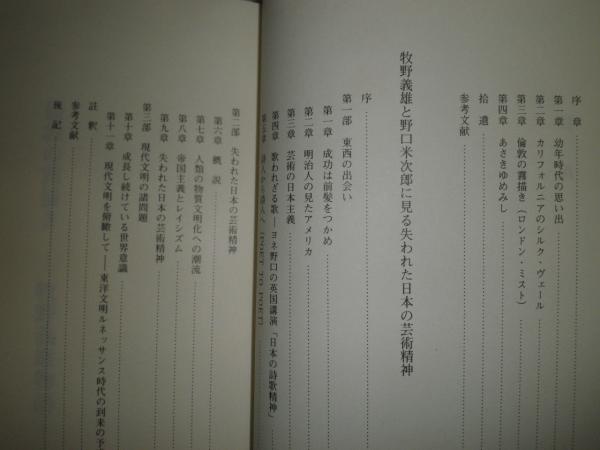 序章
第一章 幼年時代の思い出
第二章 カリフォルニアのシルク・ヴェール
第三章 倫敦の霧描き(ロンドン・ミスト)
第四章 あさきゆめみし
拾遺
参考文献
牧野義雄と野口米次郎に見る失われた日本の芸術精神
序
第一部 東西の出会い
第一章 成功は前髪をつかめ
第二章 明治人の見たアメリカ
第三章 芸術の日本主義
第四章 歌われざる歌―ヨネ野口の英国講演「日本の詩歌精神」
第五章 詩人から詩人へ (POET TO POET)
第二部 失われた日本の芸術精神
第六章 概説
第七章 人類の物質文明化への潮流
第八章 帝国主義とレイシズム
第九章 失われた日本の芸術精神
第三部 現代文明の諸問題
第十章 成長し続けている世界意識
第十一章 現代文明を俯瞰して――東洋文明ルネッサンス時代の到来の予
註釈
参考文献
後記